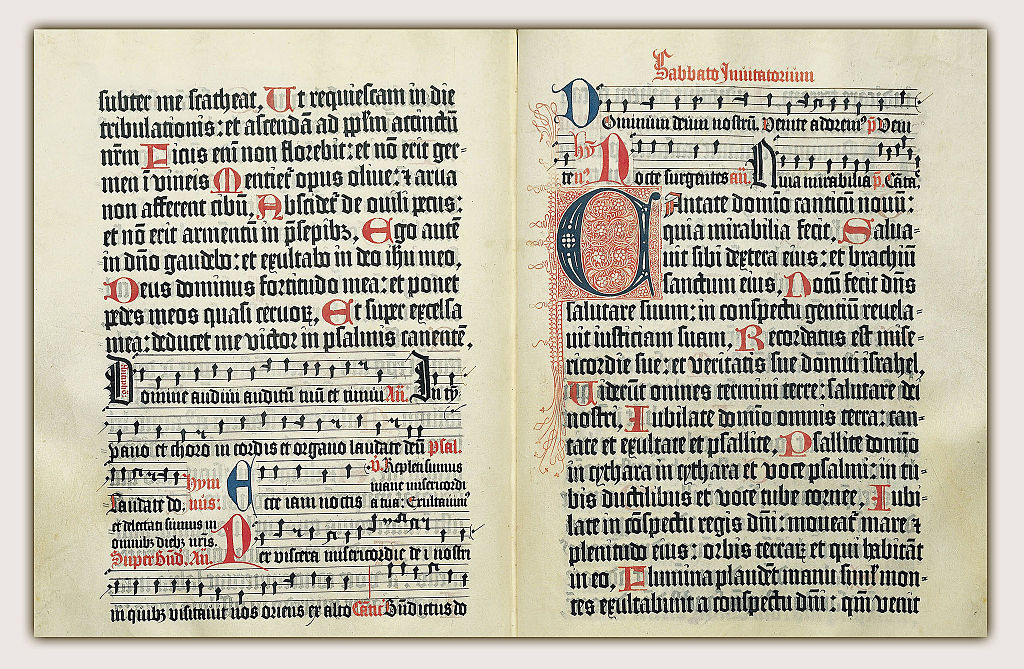 subter me scatheat, Ut requiescam in die
tribulationis: et ascendā ad pplm accinctū
nrm Ficus eni non florebit: et nō erit ger-
men ī vineis Mentiet opus olive: et arua
non afferent cibū, Abscidet de ovili pecus:
et nō erit armentū in p̄sepibꝫ, Ego autē
in dn̄o gaudebo: et exultabo in deo ihu meo,
Deus dominus fortitudo mea: et ponet
pedes meos quasi ceruoꝝ, Et super excelsa
mea: deducet me victor in psalmis canentē,
Domine audiui auditū tuū et timui Añ. In tȳ
pano et choro in cordis et organo laudate deū Psal.
Laudate do. hym nus: Ecce iam noctis
℣ Repleti sumus
mane misericordi
a tua: Exultauim⁹
et delectati sumus in
omnibꝫ diebꝫ nr̄is.
Super Bn̄d. Añ. Per viscera misericordie dei nostri
in quibꝫ visitauit nos oriens ex alto Cātic Bn̄dictus do
Sabbato Inuitatorium
Dominum deum nostrū. Venite adorem⁹ p̄ Veni
te hȳ n⁹. Nocte surgentes añ. Quia mirabilia p̄. Cāta.
Cantate domīo canticū nouū:
quia mirabilia fecit, Salua-
uit sibi dextera eius: et brachiū
sanctum eius, Notū fecit dn̄s
salutare suum: in conspectu gentiū reuela-
uit iusticiam suam, Recordatus est mise-
ricordie sue: et veritatis sue domui israhel,
Uiderūt omnes termini terre: salutare dei
nostri, Iubilate domīo omnis terra: can-
tate et exultate et psallite, Psallite domīo
in cythara in cythara et voce psalmi: in tu-
bis ductilibus et voce tube cornee, Iubi-
late in cōspectu regis dn̄i: moueat mare et
plenitudo eius: orbis terraꝝ et qui habitāt
in eo, Flumina plaudēt manu simł mon-
tes exultabunt a conspectu dn̄i: qm̄ venit